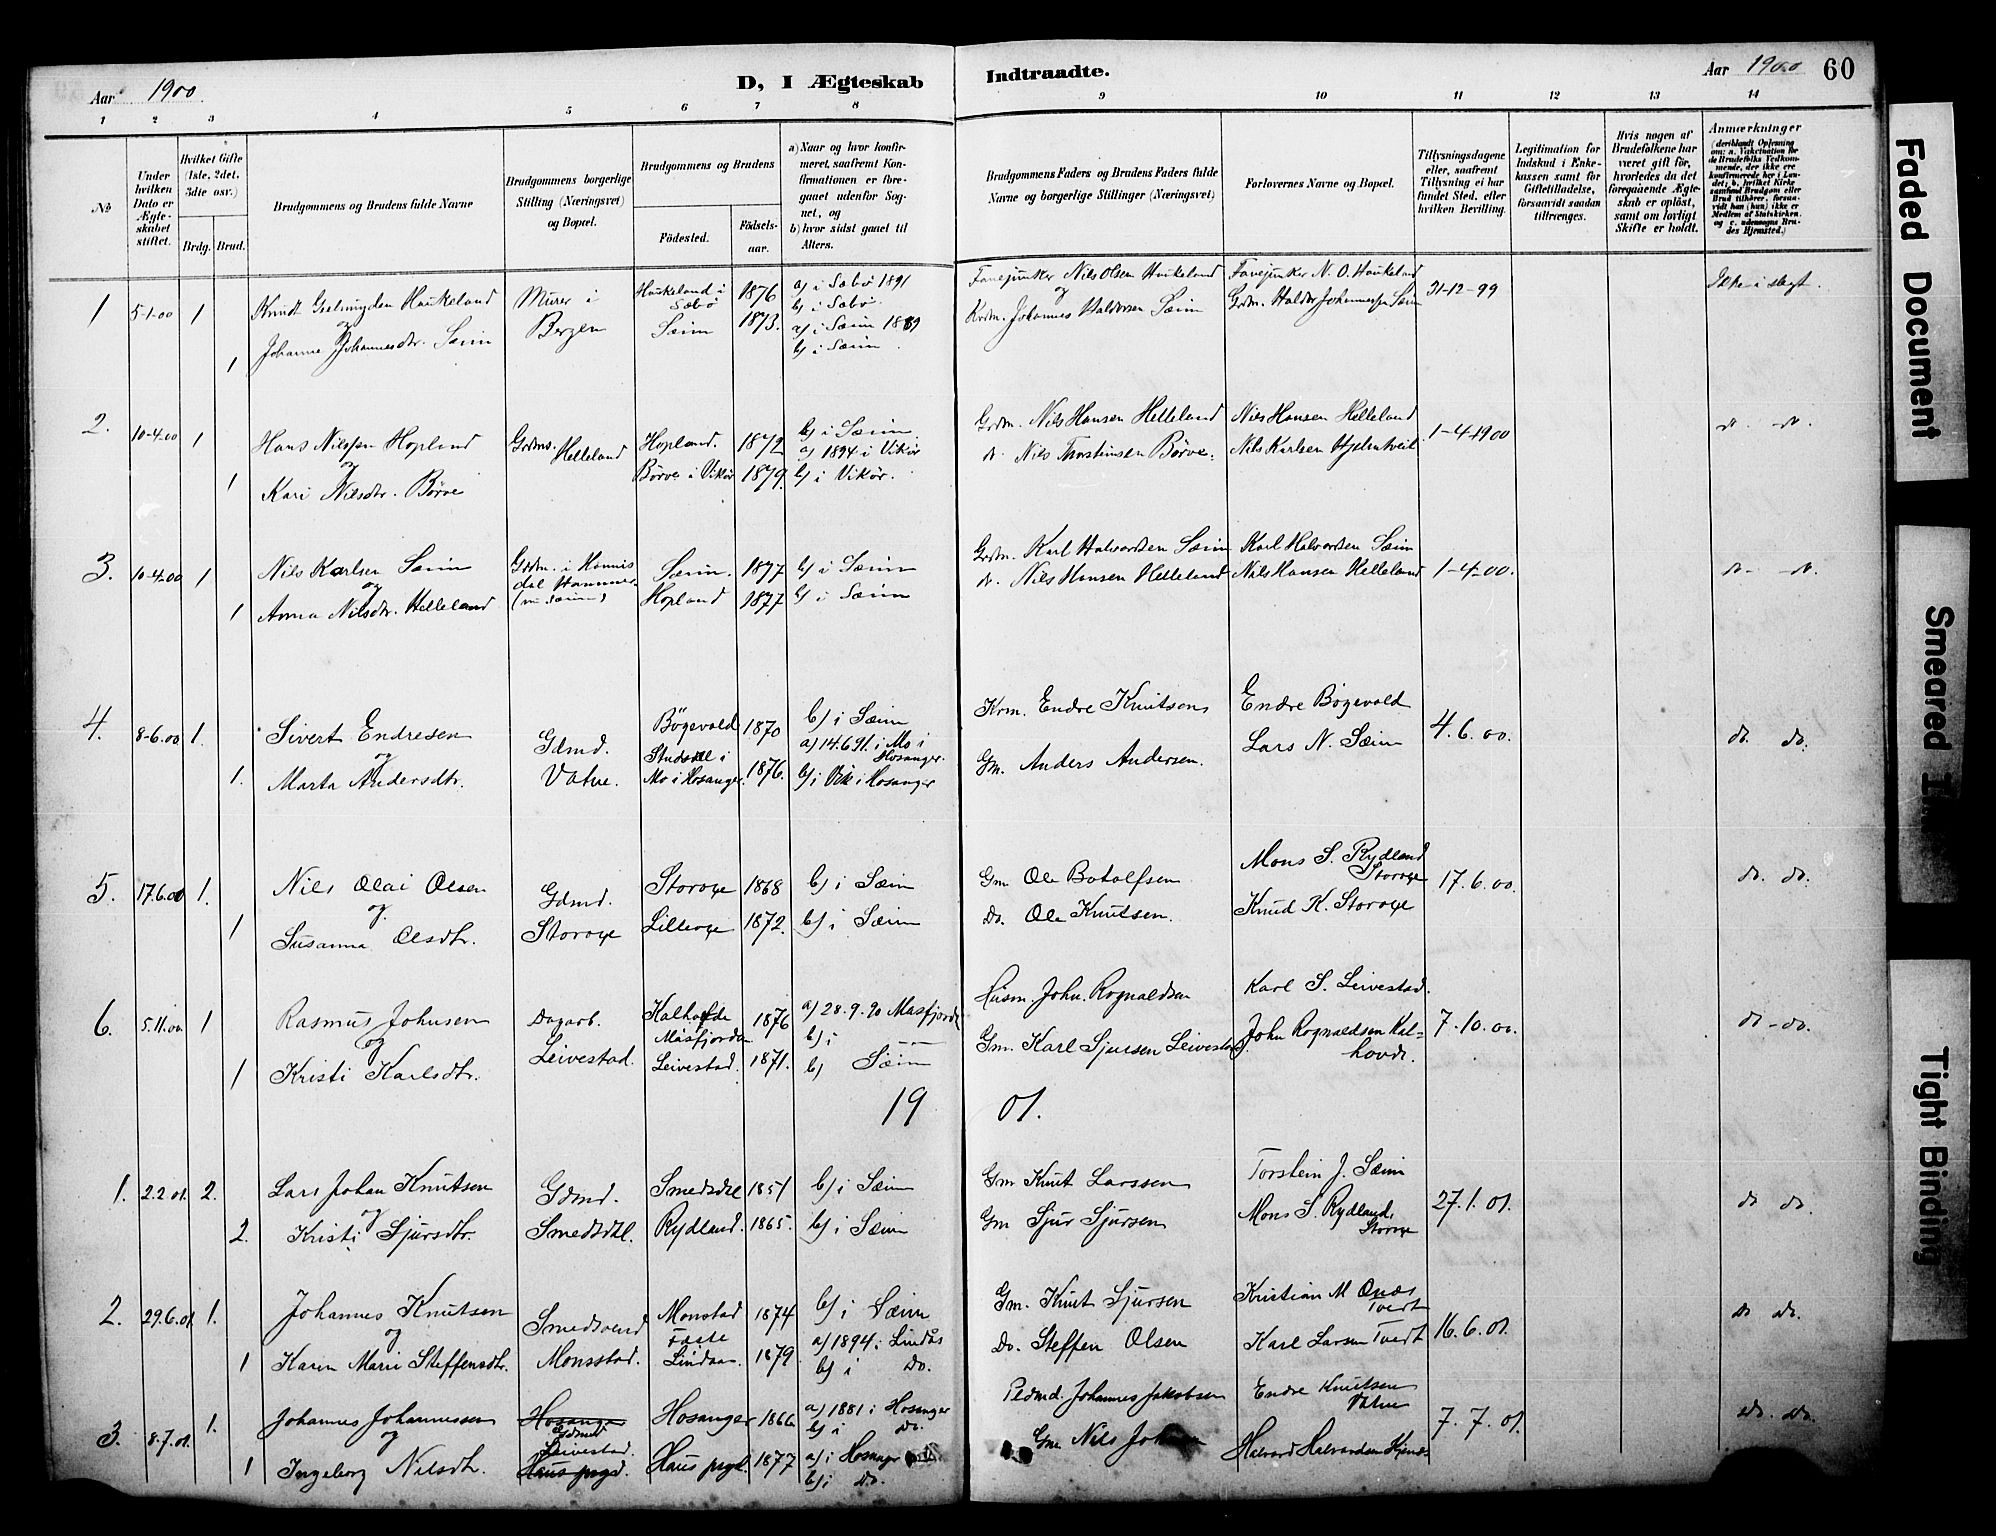 Aar 1900.
D, I Ægteskab
Indtraadte.
Aar 1900
60
1 2 3 4 5 6 7 8 9 10 11 12 13 14
№
Under hvilken Dato er Ægteskabet stiftet.
Hvilket Gifte (1ste, 2det, 3dte osv.)
Brdg. Brud.
Brudgommens og Brudens fulde Navne
Brudgommens borgerlige Stilling (Næringsvei) og Bopæl.
Brudgommens og Brudens
Födested.
Födselsaar.
a) Naar og hvor konfirmeret, saafremt Konfirmationen er foregaaet udenfor Sognet, og
b) hvor sidst gaaet til Alters.
Brudgommens Faders og Brudens Faders fulde Navne og borgerlige Stillinger (Næringsvei)
Forlovernes Navne og Bopæl.
Tillysningsdagene eller, saafremt Tillysning ei har fundet Sted, efter hvilken Bevilling.
Legitimation for Indskud i Enkekassen samt for Giftetilladelse, forsaavidt saadan tiltrænges.
Hvis nogen af Brudefolkene har været gift för, hvorledes da det foregaaende Ægteskab er oplöst, samt om lovligt Skifte er holdt.
Anmærkninger
1 5-1-00 1 Knudt Haukeland Murer i Haukeland i Sæbø 1876 a) i Sæbø 1891 Fanejunker Nils Olsen Haukeland Fanejunker N. O. Haukeland 31-12-99 Ikke i slegt.
og Bergen b) i Sæbø.
1 Johanne Johannesdtr. Sæim Sæim 1873. a) i Sæim 1889 Johannes Haldorsen Sæim Grdm. Haldor Johannessen Sæim
b) i Sæim.
2. 10-4.00 1 Hans Nilssen Hopland Grdms. Helleland Hopland. 1872 b) i Sæim Grdm. Nils Hansen Helleland Nils Hansen Helleland 1-4-1900 do. do.
og a) 1894 i Vikør
1 Kari Nilsdtr. Börve Börve i Vikør 1879. b) i Vikör. do. Nils Thorsteinsen Börve. Nils Karlsen Hjelmtveit
3. 10-4.00 1 Nils Karlsen Sæim Grdm. i Sæim. 1877 b) i Sæim Grdm. Karl Halvordsen Sæim Karl Halvordsen Sæim 1-4-00. do. do.
og
1 Anna Nilsdtr. Helleland Hopland 1877 b) i Sæim do. Nils Hansen Helleland Nils Hansen Helleland
4. 8-6.00 1. Sivert Endresen Gdmd. Bögevold 1870 b) i Sæim Endre Knutsen Endre Bögevold 4.6.00. do. do.
og Vatne. a) 14.6 91. i Mo i Hosanger.
1. Marta Andersdtr. Mo i Hosanger. 1876. b) i Hosanger Gm. Anders Andersen. Lars N. Sæim
5. 17.6.00 1. Nils Olai Olsen Gdmd. Storoge 1868 b) i Sæim Gm Ole Botolfsen Mons S. Rydland Storoge 17.6.00. do. do.
og
1 Susanna Olsdtr. Storoge Lilleoge 1872. b) i Sæim Do. Ole Knutsen. Knud K. Storoge
6. 5.11.00 1 Rasmus Johnsen Dagarb. Kalhovde Masfjorden 1876 a) 28.9.90 Masfjorden Husm. John. Rognaldsen Karl S. Leivestad. 7.10.00. do. do.
og b) i
1 Kristi Karlsdtr. Leivestad. Leivestad. 1871. b) Sæim Gm. Karl Sjursen Leivestad. John Rognaldsen Kalhovde.
19 01.
1. 2.2.01. 2. Lars Johan Knutsen Gdmd. Smedsdal 1851 b) i Sæim Gm Knut Larssen Torstein J. Sæim 27.1.01. do do.
og
2. Kristi Sjursdtr. Smedsdal. Rydland. 1865. b) i Sæim Gm Sjur Sjursen Mons S. Rydland, Storoge
2. 29.6.01. 1. Johannes Knutsen Monstad 1874 b) i Sæim Gm. Knut Sjursen Kristian M. Tvedt 16.6.01. do do.
og a) 1894 i Lindås
1 Karen Marie Steffensdtr. Monsstad. Lindaas. 1879 b) i Do. Do. Steffen Olsen Karl Larsen Tvedt
3. 8.7.01. 1. Johannes Johannessen Hosanger Hosanger 1866 a) 1881 i Hosanger Johannes Jakobsen Endre Knutsen Vatne 7.7.01. do. do.
og Gdmd Leivestad. b) i Do.
1 Ingeborg Nilsdtr. Haus prgd. Haus prgd. 1877 a) i Hosanger Gm. Nils Halvard Halvardsen
b) i Do.
Faded Document
Smeared
Tight Binding